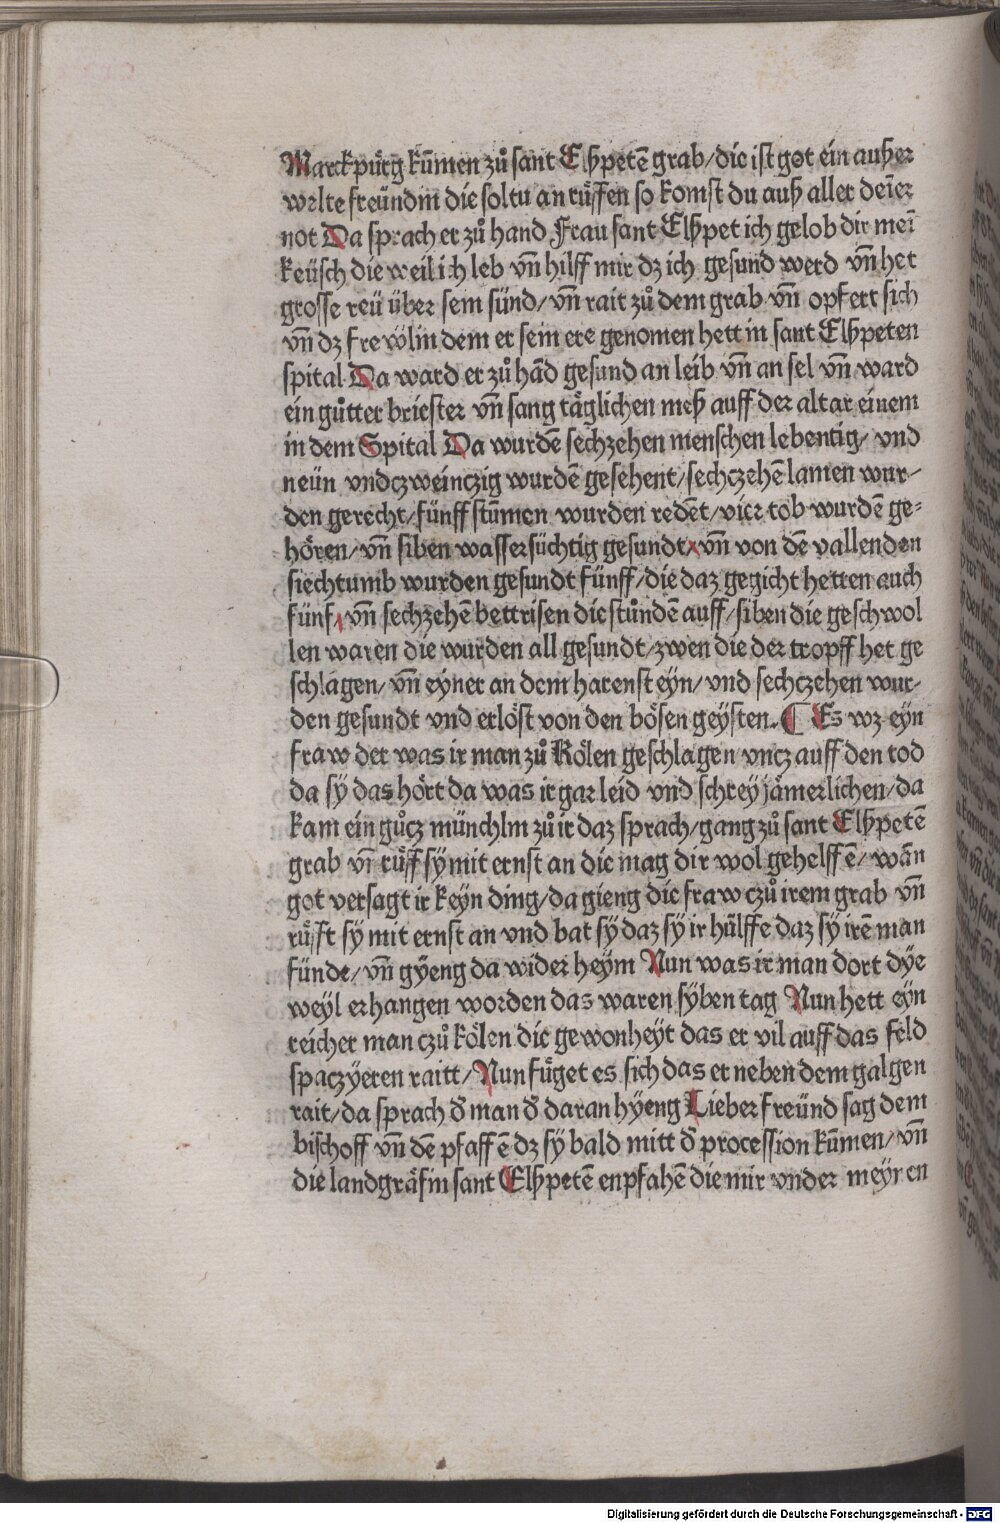 Marckpürg kūmen zů sant Elßpetē grab/die ist got ein außer
welte freündin die soltu an rüffen so komst du auß aller deīer
not Da sprach er zů hand Frau sant Elßpet ich gelob dir meī
keüsch die weil ich leb vn̄ hilff mir dz ich gesund werd vn̄ het
grosse reü über sein sünd/ vn̄ rait zů dem grab vn̄ opfert sich
vn̄ dz frewlin dem er sein ere genomen hett in sant Elßpeten
spital Da ward er zů hād gesund an leib vn̄ an sel vn̄ ward
ein gůtter briester vn̄ sang täglichen meß auff der altar einem
in dem Spital Da wurdē sechzehen menschen lebentig/ vnd
neün vndczweinczig wurdē gesehent/sechczehē lamen wur-
den gerecht/fünff stūmen wurden redēt/vier tob wurdē ge-
hören/vn̄ siben wassersüchtig gesundt/vn̄ von dē vallenden
siechtumb wurden gesundt fünff/die daz gegicht hetten auch
fünf/vn̄ sechzehē bettrisen die stůndē auff/siben die geschwol
len waren die wurden all gesundt/zwen die der tropff het ge
schlagen/vn̄ eyner an dem harensteyn/vnd sechczehen wur-
den gesundt vnd erlöst von den bösen geÿsten. ¶ Es wz eyn
fraw der was ir man zů Kölen geschlagen vncz auff den tod
da sÿ das hört da was ir gar leid vnd schrey jämerlichen/da
kam ein gůcz münchlin zů ir daz sprach/gang zů sant Elßpetē
grab vn̄ rüff sÿ mit ernst an die mag dir wol gehelffē/wān
got versagt ir keyn ding/da gieng die fraw czů irem grab vn̄
rüfft sÿ mit ernst an vnd bat sÿ daz sÿ ir hülffe daz sÿ irē man
fünde/vn̄ gÿeng da wider heÿm Nun was ir man dort dÿe
weÿl erhangen worden das waren sÿben tag Nun hett eÿn
reicher man czů kölen die gewonheÿt das er vil auff das feld
spaczÿeren raitt/Nun füget es sich das er neben dem galgen
rait/da sprach đ man đ daran hÿeng Lieber freünd sag dem
bischoff vn̄ dē pfaffē dz sÿ bald mitt đ procession kūmen/vn̄
die landgräfin sant Elßpetē enpfahē die mir vnder meÿren
Digitalisierung gefördert durch die Deutsche Forschungsgemeinschaft - DFG